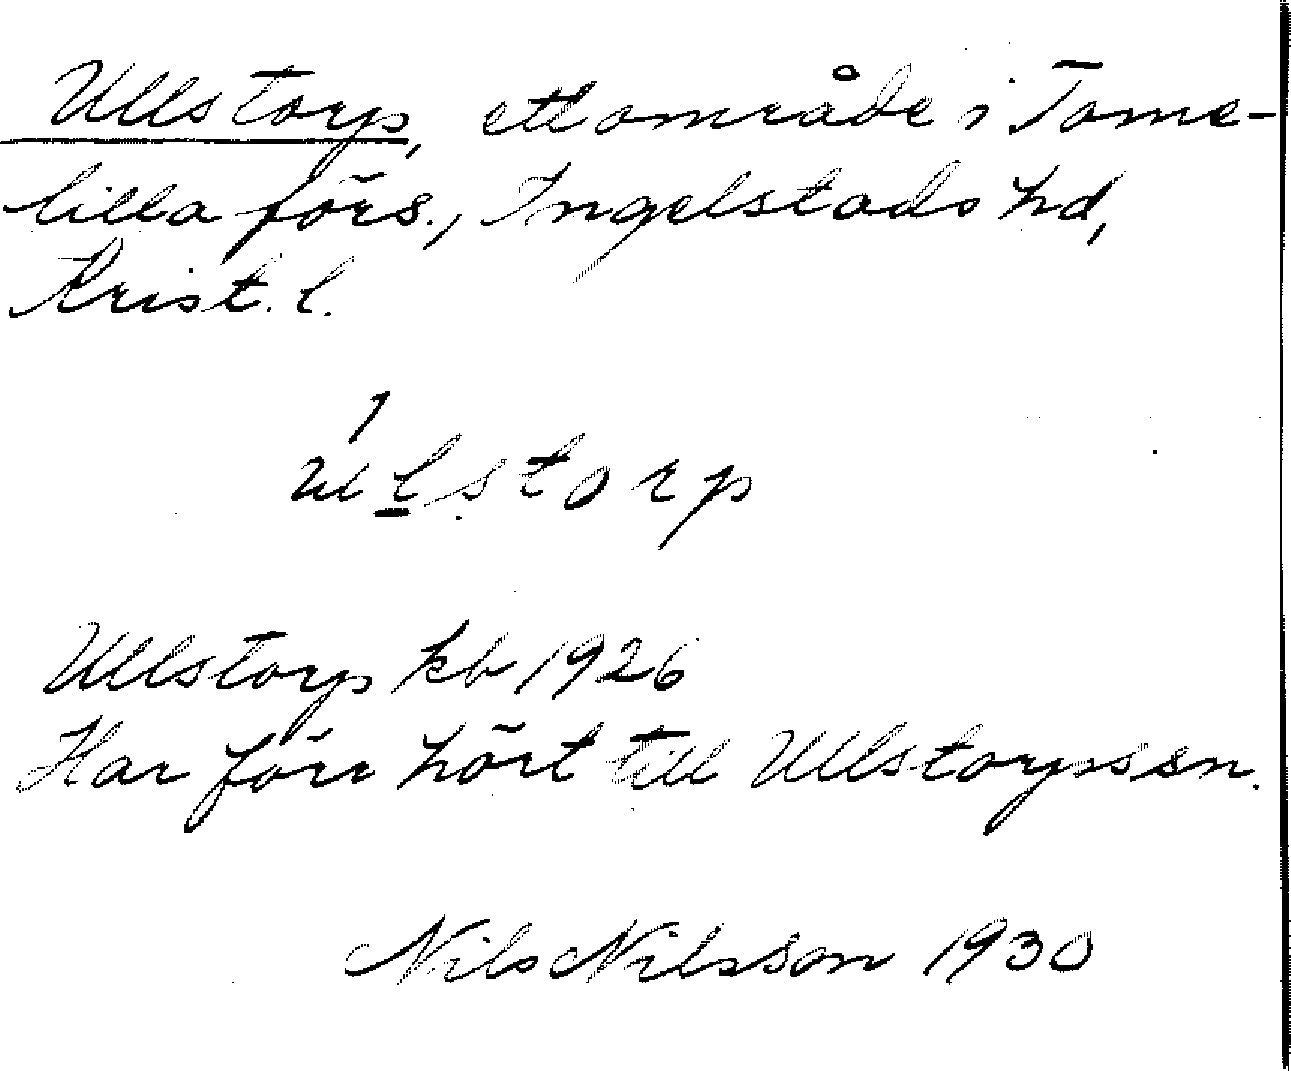 Ullstorp, ett område i Tome-
lilla förs., Ingelstads hd,
Krist. l.
ulstorp
Ullstorp kb 1926
Har förr hört till Ullstorps sn.
Nils Nilsson 1930